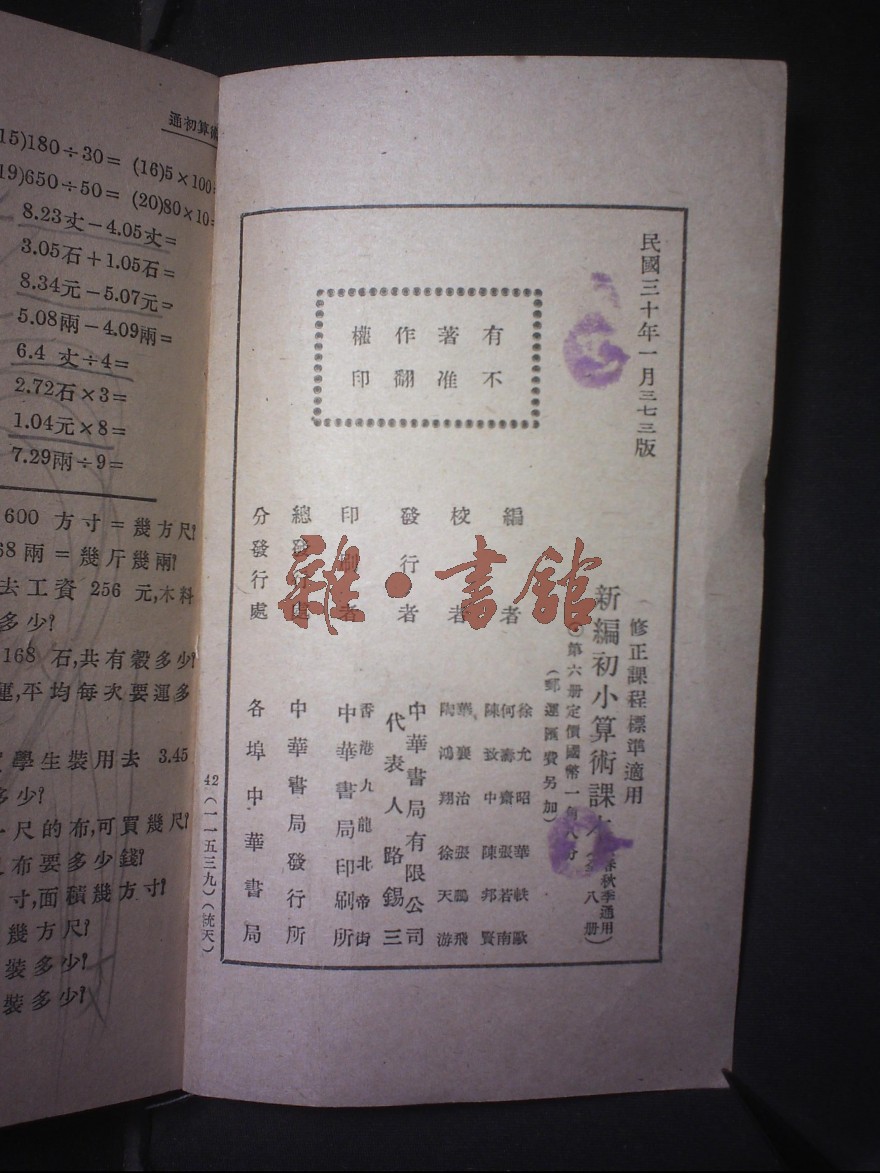 民國三十年一月三七三版
有著作權
不准翻印
修正課程標準適用
新編初小算術課
春秋季通用
八冊
第六冊定價國幣一角八分
(郵運匯費另加)
編者
徐允昭 華軼歐
何壽齋 張若南
陳致中 陳邦賢
校者
華襄治 張鵬飛
陶鴻翔 徐天游
發行者
中華書局有限公司
代表人 路錫三
印刷者
香港九龍北帝街
中華書局印刷所
總發行處
中華書局發行所
分發行處
各埠中華書局
42 (一一五三九)(統天)
雜·書館
通初算術
15)180÷30= (16)5×100=
19)650÷50= (20)80×10=
8.23丈−4.05丈=
3.05石+1.05石=
8.34元−5.07元=
5.08兩−4.09兩=
6.4 丈÷4=
2.72石×3=
1.04元×8=
7.29兩÷9=
600 方寸=幾方尺?
68兩=幾斤幾兩?
去工資 256 元,木料
多少?
168 石,共有穀多少?
運,平均每次要運多
學生裝用去 3.45
多少?
尺的布,可買幾尺?
布要多少錢?
寸,面積幾方寸?
幾方尺?
裝多少?
裝多少?